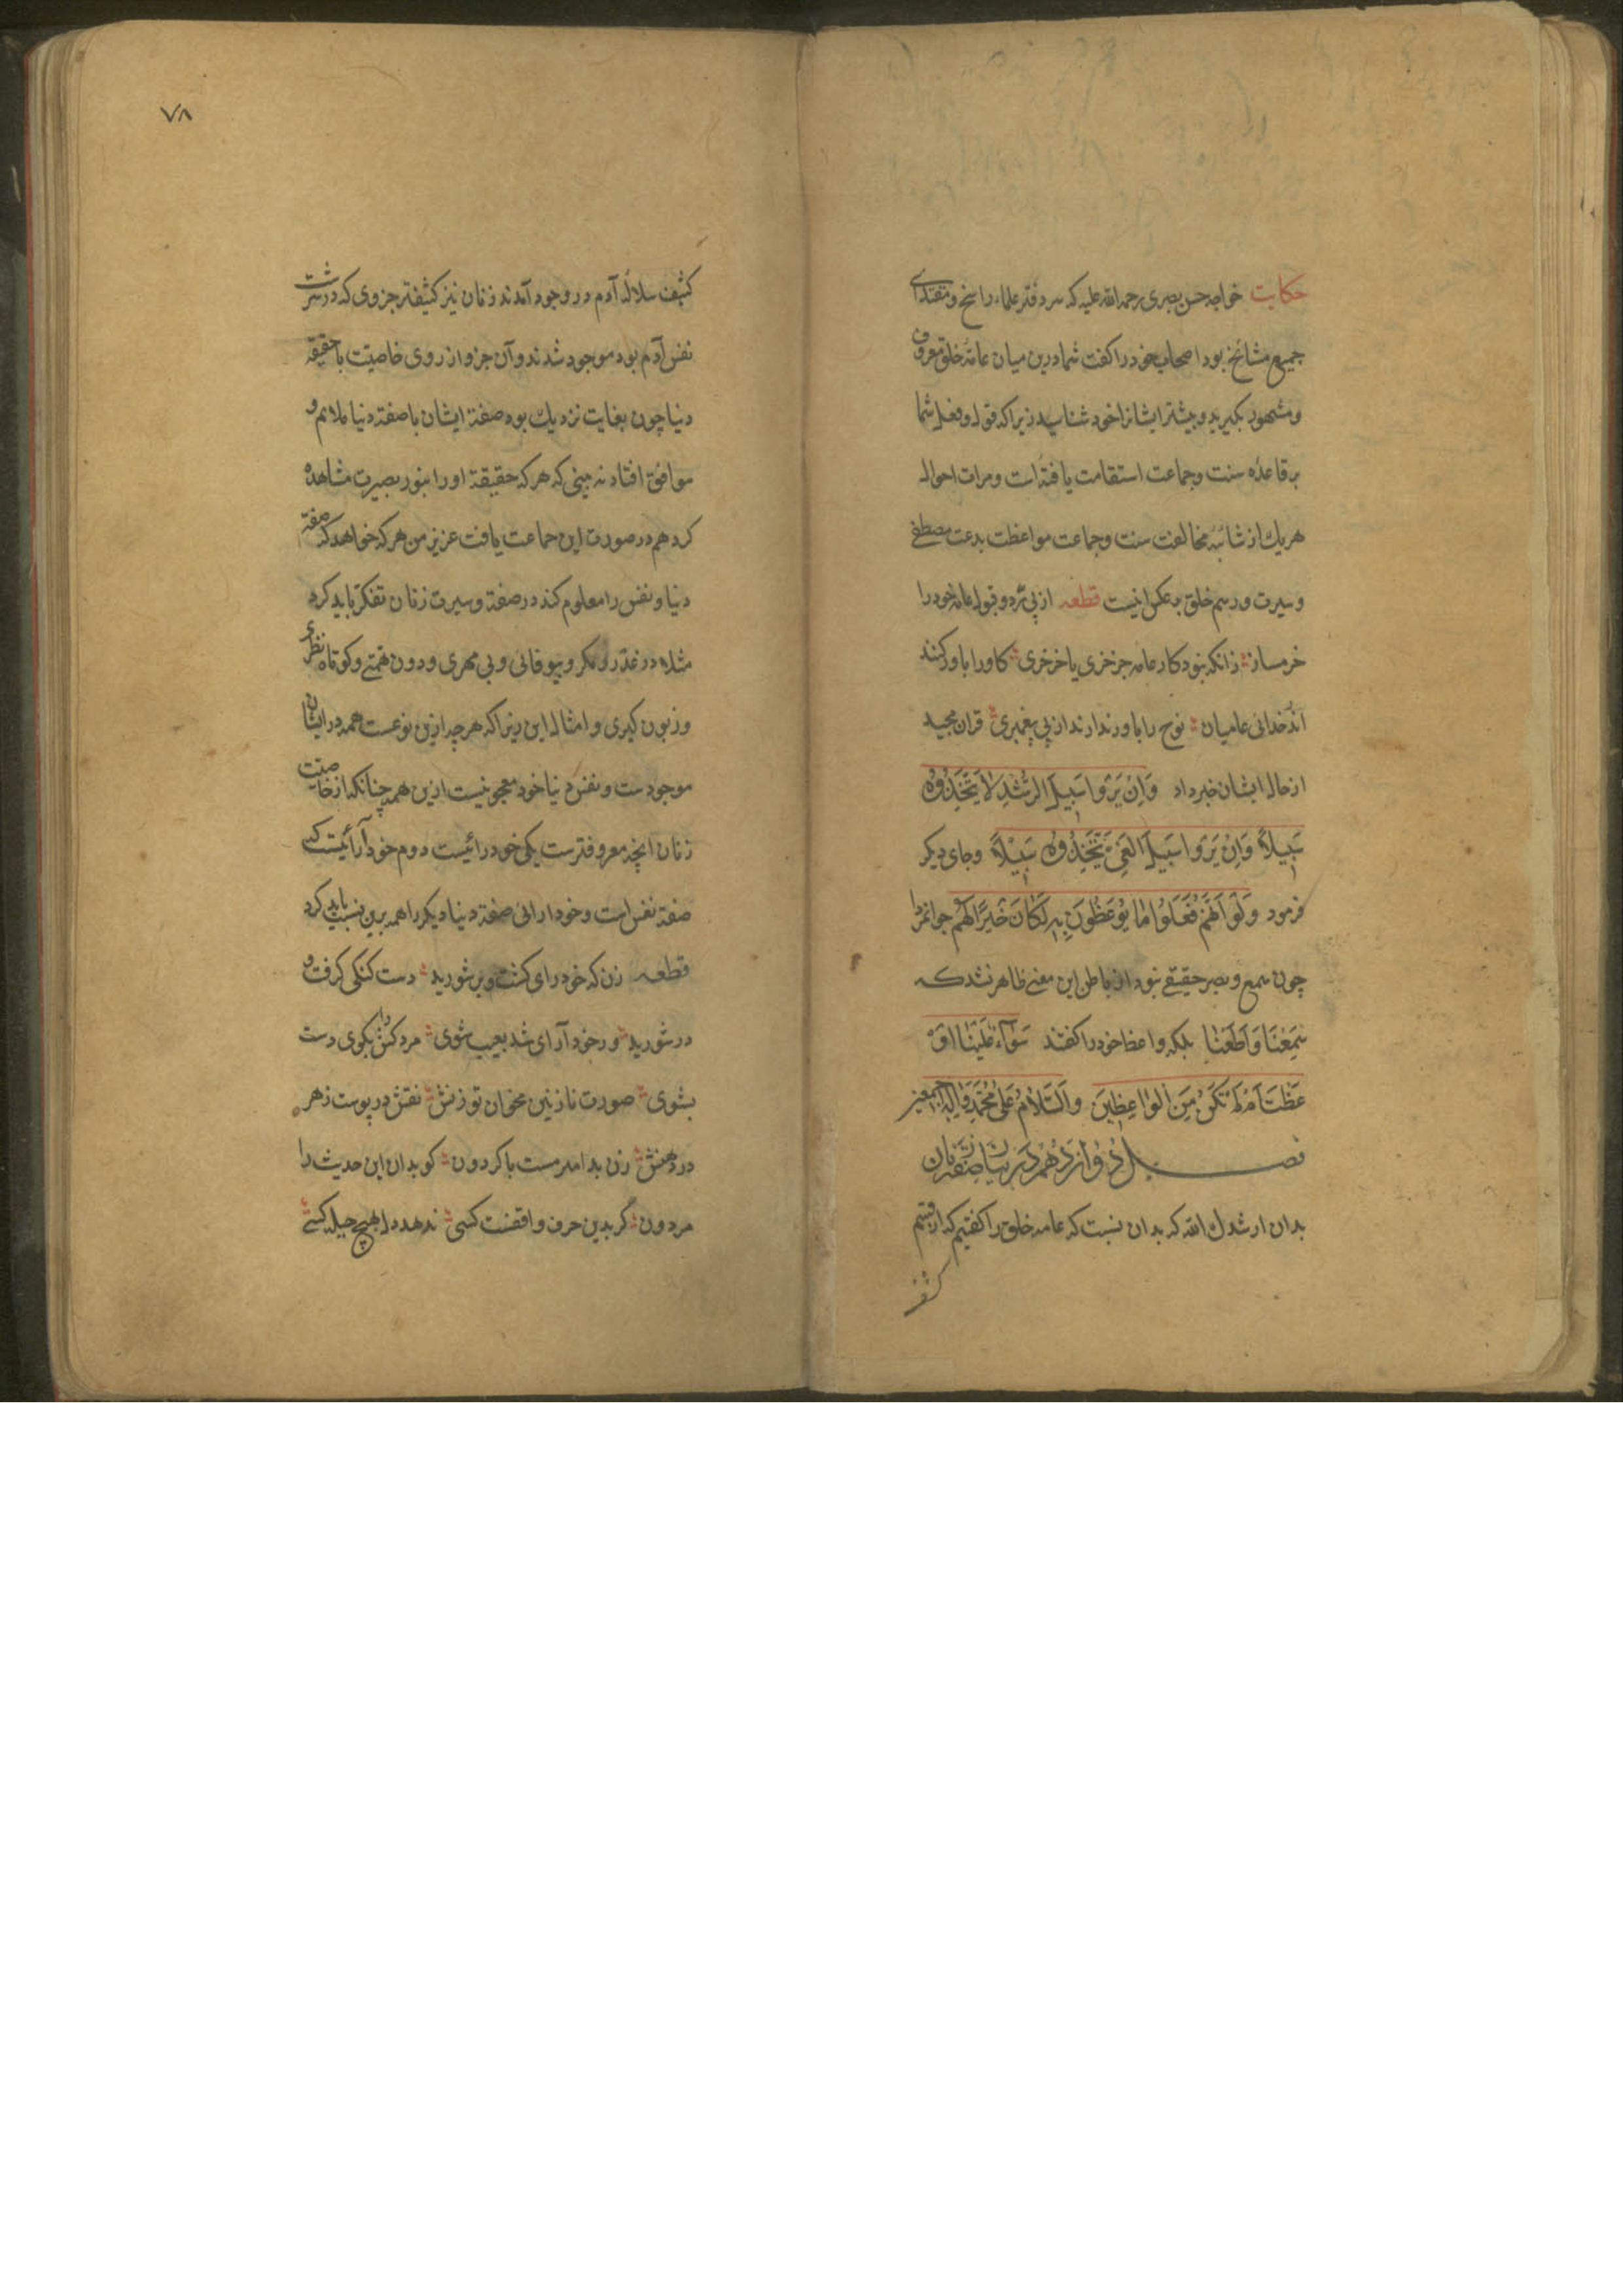 حکایت خواجه حسن بصری رحمه الله علیه که سر دفتر علماء راسخ و مقتدای
جمیع مشائخ بود اصحاب خود را کفت شما درین میان عامهٔ خلق معروف
و مشهور بکیرید و بیشتر ایشانرا خود شناسید زیرا که قول و فعل شما
بر قاعدهٔ سنت و جماعت استقامت یافته است و مرات احوال
هریك از شائبهٔ مخالفت سنت و جماعت مواعظت بدعت مصطفی
و سیرت و رسم خلق بر عکس اینست قطعه از پی رد و قبول عامه خود را
خر مساز زانکه نبود کار عامه جز خری یا خر خری کاو را باور کنند
اندر خدائی عامیان نوح را باور ندارند از پی پیغمبری قران مجید
از حال ایشان خبر داد وَاِنْ یَرَوْا سَبیلَ الرُّشْدِ لاَ یَتَّخِذُوهُ
سَبیلاً وَاِنْ یَرَوْا سَبیلَ الغَیِّ یَتَّخِذُوهُ سَبیْلاً وجای دیکر
فرمود وَلَوْ اَنَّهُمْ فَعَلُوْا مَا یُوْعَظُونَ بِهِ لَکَانَ خَیْرًا لَهُمْ جوانمردا
چون سمع و بصر حقیقی نبود از باطن این معنی ظاهر نشد که
سَمِعْنَا وَاَطَعْنَا بلکه واعظ خود را کفتند سَوَآءٌ عَلَیْنَا اَوَ
عَظْتَ اَمْ لَمْ تَکُنْ مِنَ الْوَاعِظِینَ وَالسَّلاَمُ عَلَی مُحَمَّدٍ وَآلِهِ اَجمعین
فصل دُوازدَهُم دَر بیَان صِفَتِ زنَان
بدان ارشدك الله که بدان نسبت که عامه خلق را کفتیم که از قسم
کثیف
٧٨
کثیف سلالهٔ آدم در وجود آمدند زنان نیز کثیفتر جزوی که در سرشت
نفس آدم بود موجود شدند و آن جزو از روی خاصیت با حقیقه
دنیا چون بغایت نزدیك بود صفة ایشان با صفة دنیا ملائم و
موافق افتاد نه بینی که هر که حقیقة او را بنور بصیرت مشاهده
کرد هم در صورت این جماعت یافت عزیز من هر که خواهد که صفة
دنیا و نفس را معلوم کند در صفة و سیرت زنان تفکر باید کرد
مثلا در غدر و مکر و بیوفائی و بی مهری و دون همتی و کوتاه نظری
و زبون کیری و امثال این زیرا که هر چه ازین نوعست همه در ایشان
موجودست و نفس دنیا خود معجونیست ازین همه چنانکه از خاصیت
زنان انچه معروفترست یکی خود رائیست دوم خود آرائیست که
صفة نفس است و خودارائی صفة دنیا دیکر را همه برین نسبت باید کرد
قطعه زن که خود رای کشت و بر شورید دست کنکی کرفت و
در شورید ور خود آرای شد بعیب شوی مرد کش را بکوی دست
بشوی صورت نازنین مخوان تو زنش نقش در پوست زهر
در دهنش زن بد امدست با کردون کو بدان این حدیث را
مردون کر بدین حرف واقفست کسی ندهد دل بهیچ حیله کسی